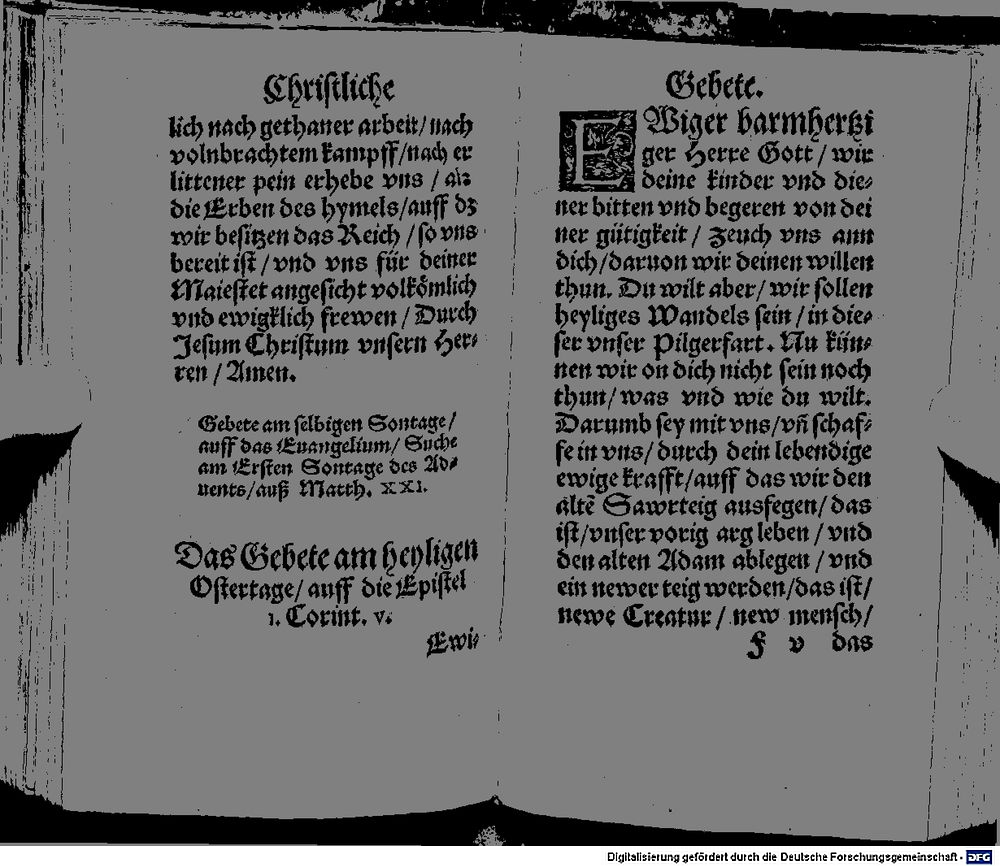 Christliche
lich nach gethaner arbeit/nach
volnbrachtem kampff/nach er
littener pein erhebe vns / als
die Erben des hymels/auff dz
wir besitzen das Reich /so vns
bereit ist /vnd vns für deiner
Maiestet angesicht volkömlich
vnd ewigklich frewen / Durch
Jesum Christum vnsern Her⸗
ren / Amen.
Gebete am selbigen Sontage/
auff das Euangelium/ Suche
am Ersten Sontage des Ad⸗
uents/auß Matth. XXI.
Das Gebete am heyligen
Ostertage/ auff die Epistel
1. Corint. v.
Ewi⸗
Gebete.
EWiger barmhertzi
ger Herre Gott / wir
deine kinder vnd die⸗
ner bitten vnd begeren von dei
ner gütigkeit / zeuch vns ann
dich/daruon wir deinen willen
thun. Du wilt aber/ wir sollen
heyliges Wandels sein /in die⸗
ser vnser Pilgerfart. Nu kün⸗
nen wir on dich nicht sein noch
thun/ was vnd wie du wilt.
Darumb sey mit vns/vñ schaf⸗
fe in vns/ durch dein lebendige
ewige krafft/auff das wir den
altẽ Sawrteig ausfegen/ das
ist/vnser vorig arg leben / vnd
den alten Adam ablegen / vnd
ein newer teig werden/das ist/
newe Creatur / new mensch/
F v das
Digitalisierung gefördert durch die Deutsche Forschungsgemeinschaft - DFG